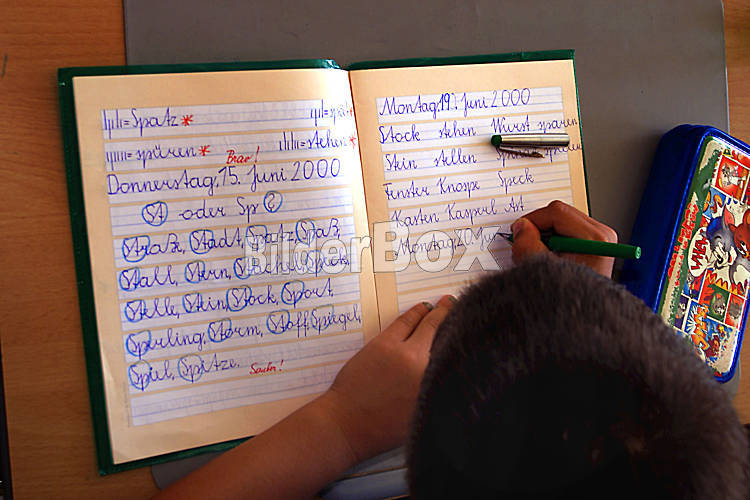 = Spatz *
= spüren *
= stehen *
Brav!
Donnerstag, 15. Juni 2000
St oder Sp?
Straße, Stadt, Spatz, Spaß,
Stall, Stern, Stachel, Speck,
Stelle, Stein, Stock, Sport,
Sperling, Storm, Stoff, Spiegel,
Spiel, Spitze.
Sauber!
Montag, 19. Juni 2000
Stock stehen Wurst sparen
Stein stellen
Fenster Knospe Speck
Kasten Kasperl Ast
Montag, 20. Ju
BilderBox